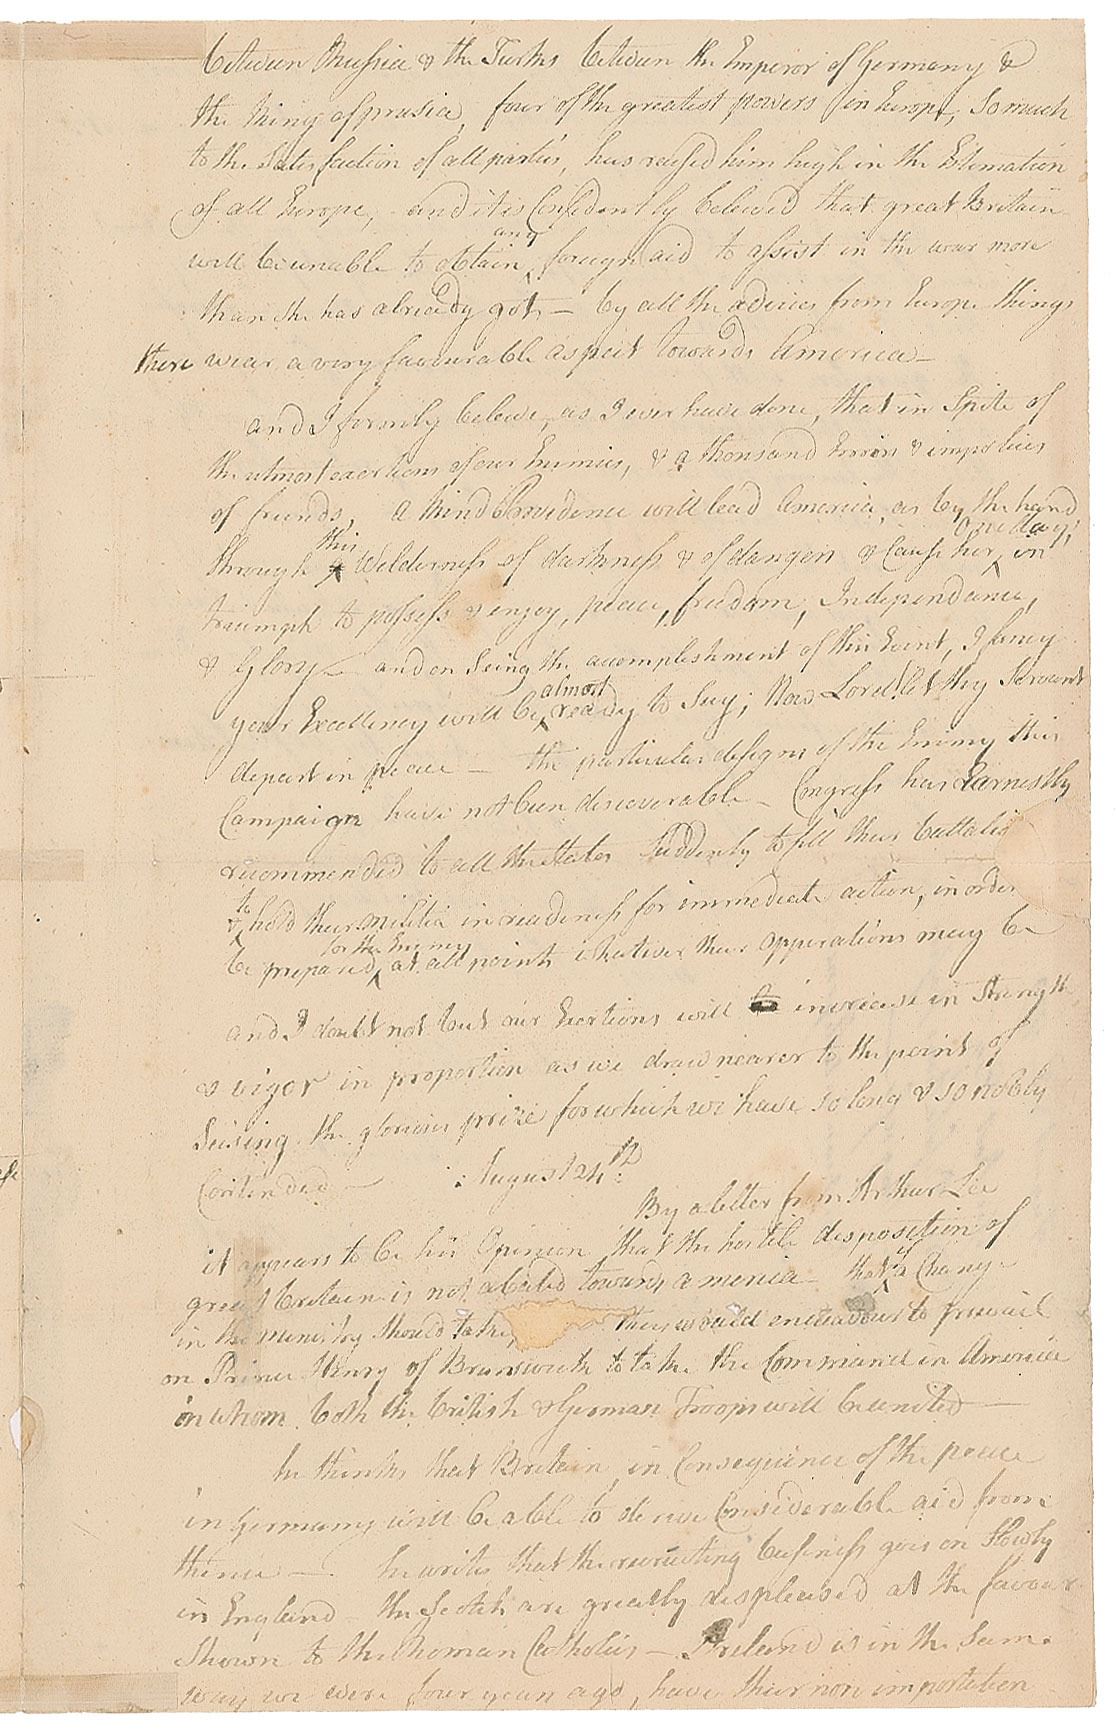 between Russia & the Turks between the Emperor of Germany &
the King of prusia, four of the greatest powers in Europe, so much
to the satisfaction of all parties, has raised him high in the Estimation
of all Europe, and it is Confidently beleived that great Britain
will be unable to obtain any foreign aid to assist in the war more
than she has already got — by all the advices from Europe things
there wear a very favourable aspect towards America —
and I formily beleive, as I ever have done, that in Spite of
the utmost exertions of our Enimies, & a thousand Errors & impolicies
of friends, a kind Providence will lead America, as by the hand
through this Wilderness of darkness & of dangers & Cause her, one day, in
triumph to possess & enjoy, peace, freedom, Independance,
& Glory — and on Seing the accomplishment of this Event, I fancy
your Excellency will be almost ready to Say; Now Lord! let thy Servant
depart in peace — the particular designs of the Enimy this
Campaign have not been discoverable — Congress has Earnestly
recommended to all the States Suddenly to fill their battalio
& to hold their militia in readiness for immediate action, in order
to be prepared for the Enimy at all points whatever their opperations may be
and I doubt not but our Exertions will increase in Strength
& vigor in proportion as we draw nearer to the point of
Seising the glorious prize for which we have so long & so nobly
Contended — : August 24th:
By a letter from Arthur Lee
it appears to be his Opinion that the hostile disposition of
great britain is not abated towards america — that if a Change
in the ministry should take, they would endeavour to prevail
on Prince Henry of Brunswick to take the Command in America
in whom both the british & German Troops will be united —
he thinks that Britain in Consequence of the peace
in Germany will be able to derive Considerable aid from
thence — he writes that the recruiting business goes on Slowly
in England — the Scotch are greatly displeased at the favour
Shown to the Roman Catholics — Ireland is in the Same
way we were four years ago, have their non importation